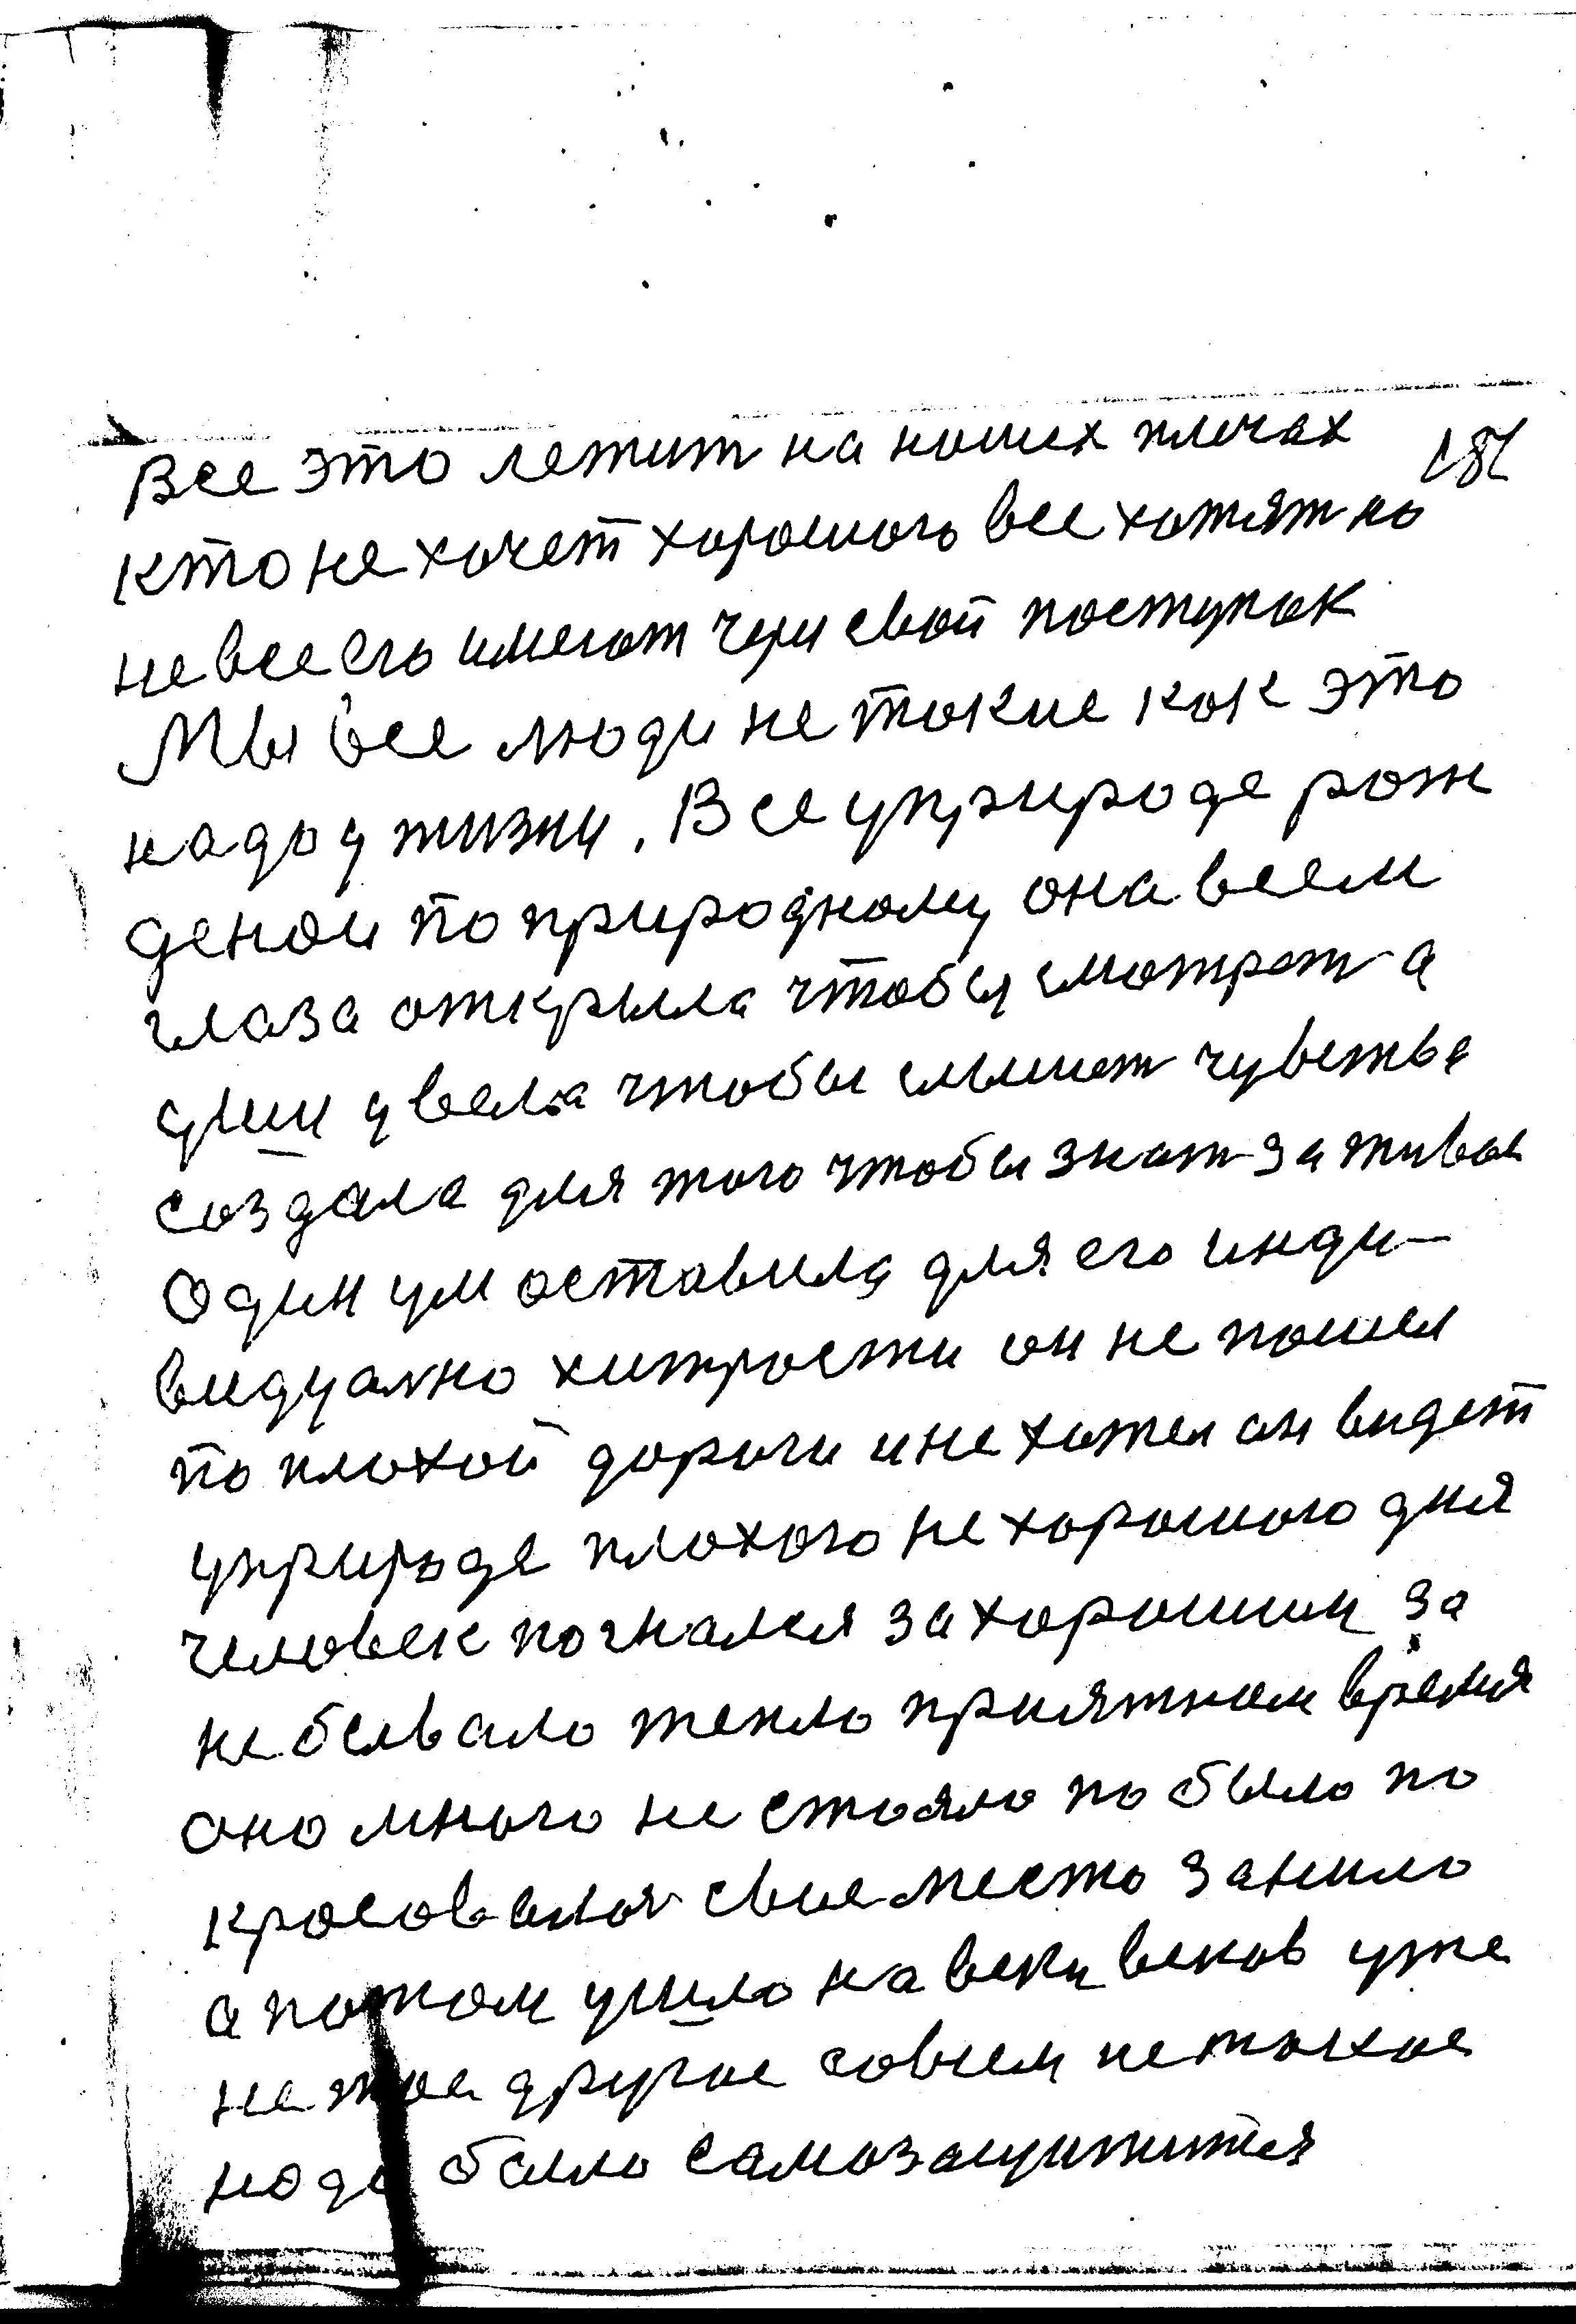 Все это лежит на наших плечах
кто не хочет хорошого все хотят но
не все его имеют через свой поступок
Мы все люди не такие как это
надо у жизни. Все у природе рож
деное по природному она всем
глаза открыла чтобы смотрет а
уши увела чтобы слышет чувства
создала для того чтобы знат за живое
Один ум оставила для его инди-
видуално хитрости он не пошел
по плохой дороги и не хотел он видет
у природе плохого не хорошого дня
человек погнался за хорошим за
не бывало тепло приятном время
оно много не стояло побыло по
красовалос свое место занило
а потом ушло на веки веков уже
не тое другое совсем не такое
надо было самозащитится